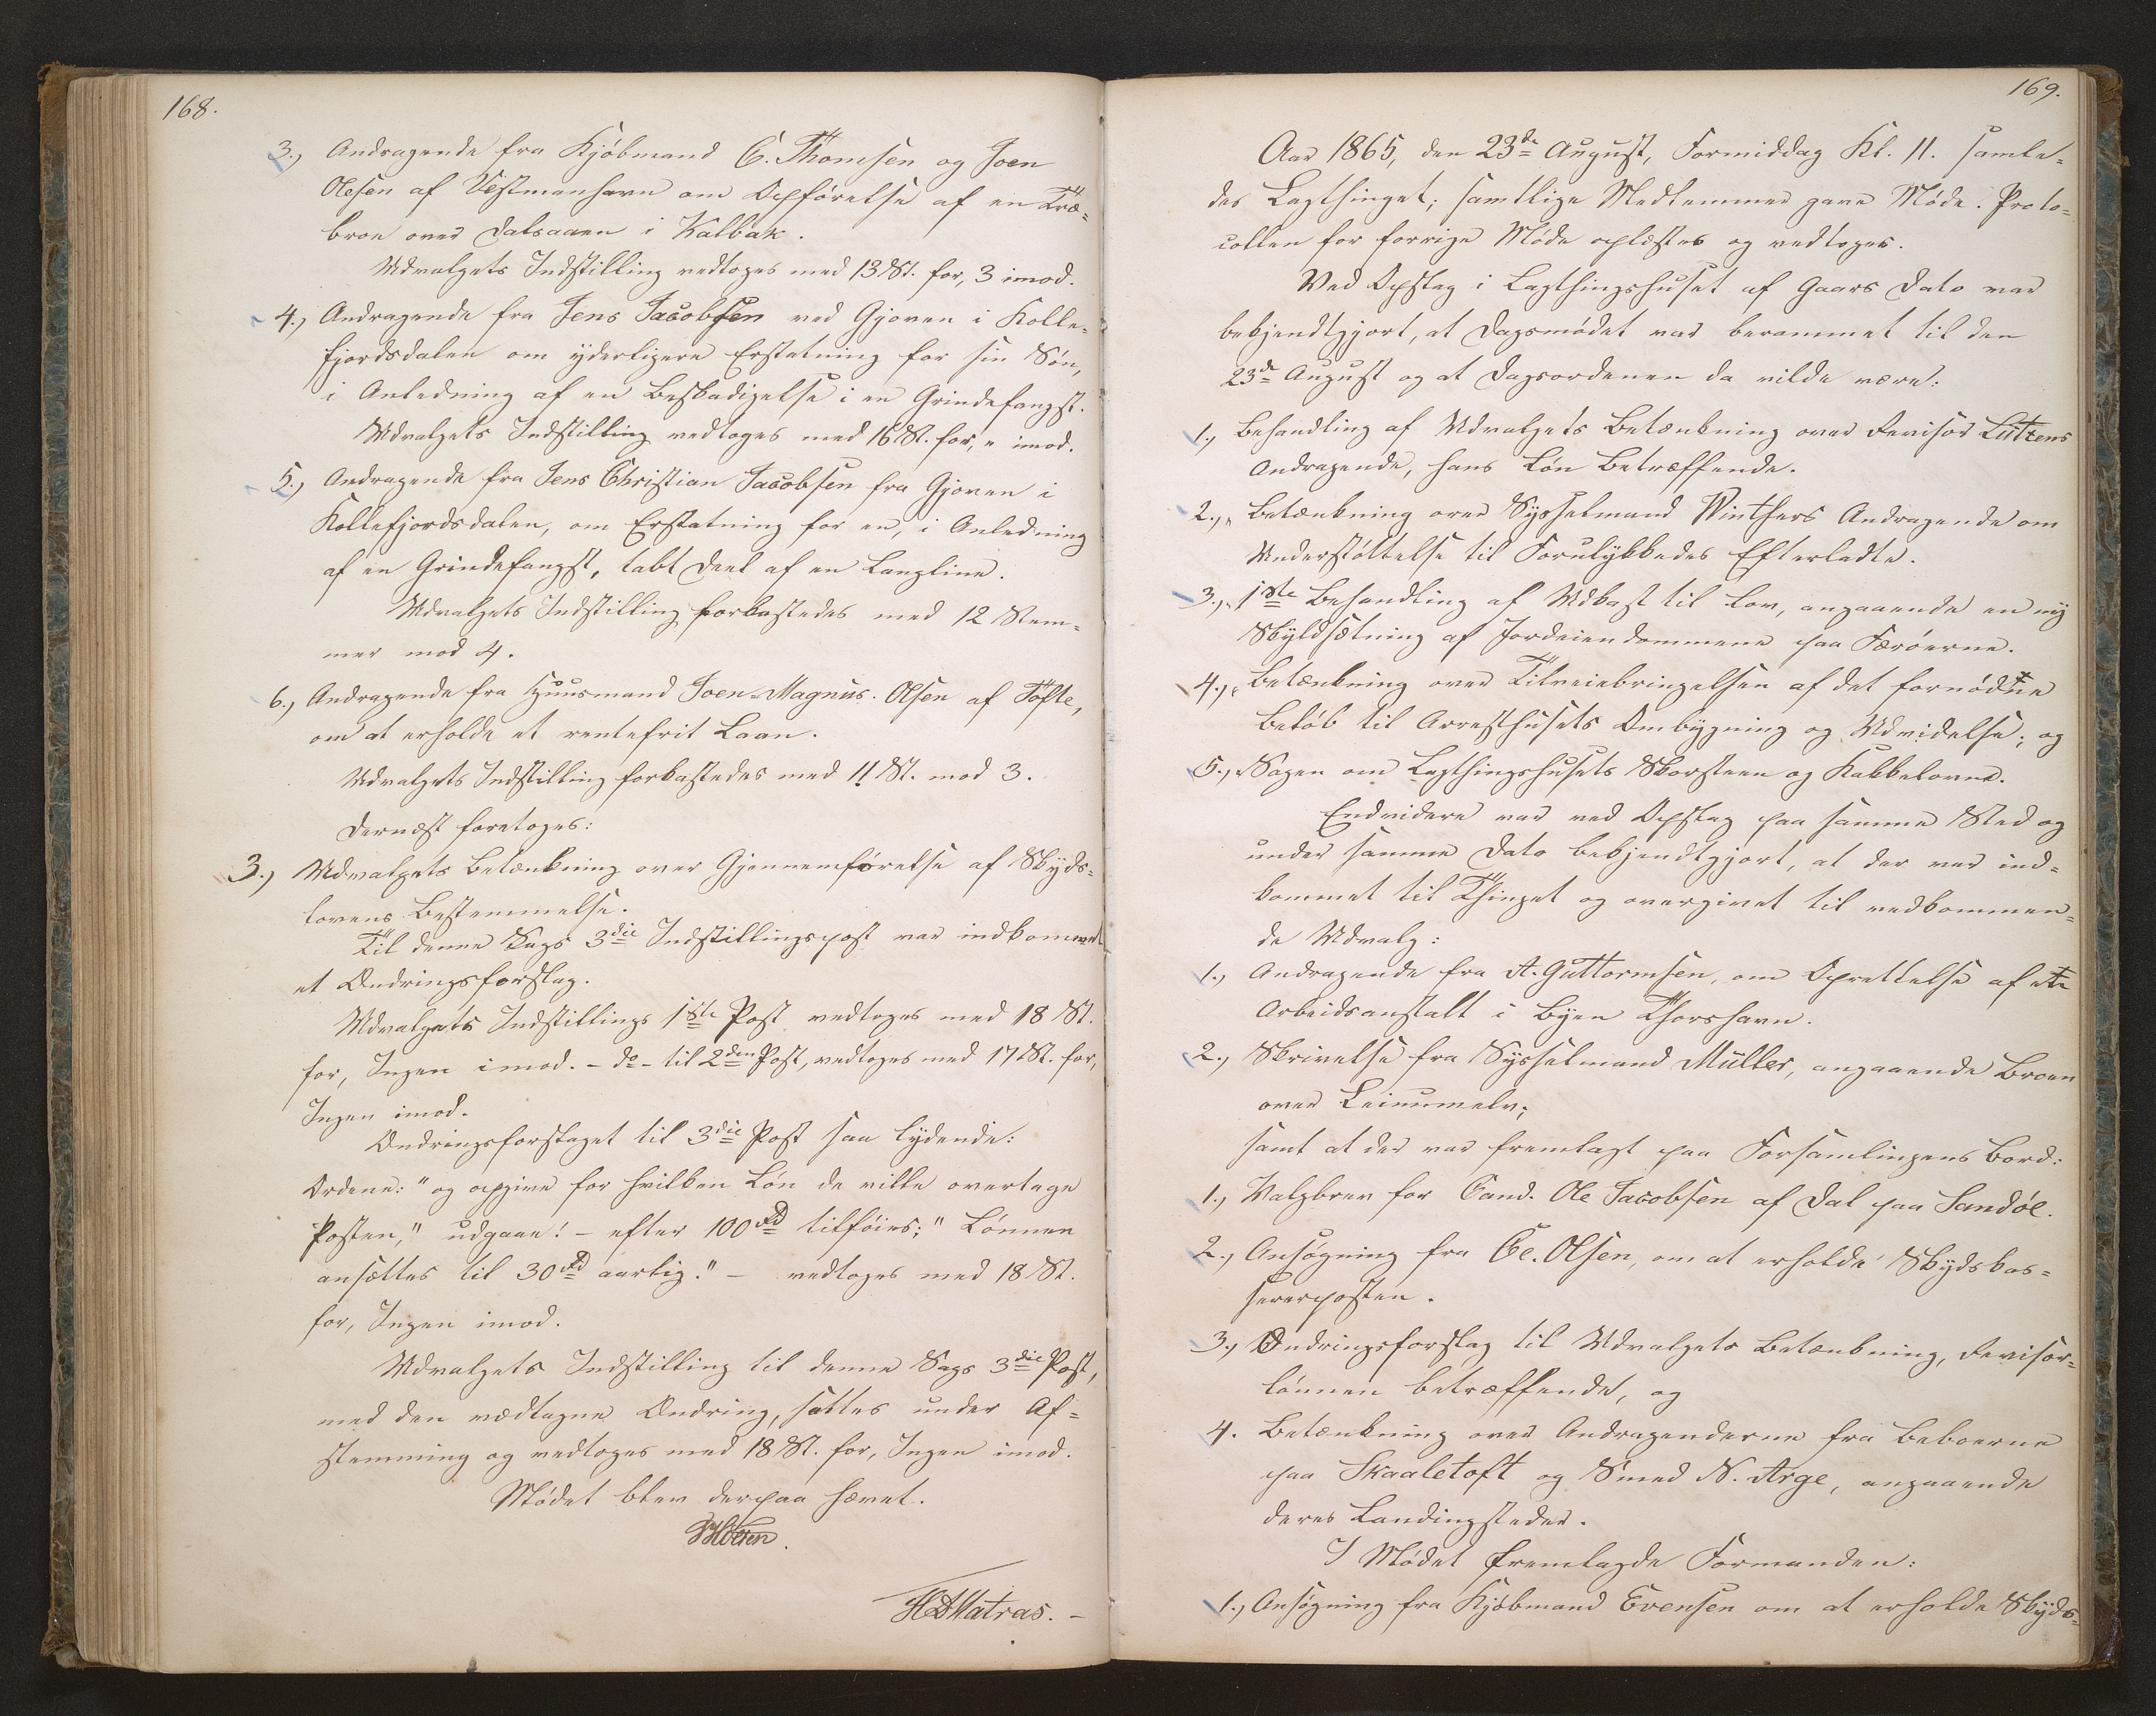 168.
3., Andragende fra Kjøbmand C. Thomsen og Joen
Olesen af Vestmanhavn om Opførelse af en Træ-
broe over Dalsaaen i Kalbak.
Udvalgets Indstilling vedtoges med 13 St. for, 3 imod.
4., Andragende fra Jens Jacobsen ved Gjoven i Kolle-
fjordsdalen om yderligere Erstatning for sin Søn,
i Anledning af en Beskadigelse i en Grindefangst.
Udvalgets Indstilling vedtoges med 16 St. for, " imod.
5., Andragende fra Jens Christian Jacobsen fra Gjoven i
Kollefjordsdalen, om Erstatning for en, i Anledning
af en Grindefangst, tabt Deel af en Langline.
Udvalgets Indstilling forkastedes med 12 Stem-
mer mod 4.
6., Andragende fra Huusmand Joen Magnus Olsen af Tofte,
om at erholde et rentefrit Laan.
Udvalgets Indstilling forkastedes med 11 St. mod 3.
Dernæst foretoges:
3.) Udvalgets Betænkning over Gjennemførelse af Skyds-
lovens Bestemmelse.
Til denne Sags 3die Indstillingspost var indkommet
et Ændringsforslag.
Udvalgets Indstillings 1ste Post vedtoges med 18 St.
for, Ingen imod. - do - til 2den Post, vedtoges med 17 St. for,
Ingen imod.
Ændringsforslaget til 3die Post saa lydende:
Ordene: " og opgive for hvilken Løn de ville overtage
Posten," udgaae! - efter 100 Rd tilføies: " Lønnen
ansættes til 30 Rd aarlig." - vedtoges med 18 St.
for, Ingen imod.
Udvalgets Indstilling til denne Sags 3die Post,
med den vedtagne Ændring, sattes under Af-
stemming og vedtoges med 18 St. for, Ingen imod.
Mødet blev derpaa hævet.
HDMatras. -
169.
Aar 1865, den 23de August, Formiddag Kl. 11. samle-
des Lagthinget; samtlige Medlemmer gave Møde. Proto-
collen for forrige Møde oplæstes og vedtoges.
Ved Opslag i Lagthingshuset af Gaars Dato var
bekjendtgjort, at Dagsmødet var berammet til den
23de August og at Dagsordenen da vilde være:
1., Behandling af Udvalgets Betænkning over Revisor Lützens
Andragende, hans Løn betræffende.
2., " Betænkning over Sysselmand Winthers Andragende om
Understøttelse til Forulykkedes Efterladte.
3., " 1ste Behandling af Udkast til Lov, angaaende en ny
Skyldsætning af Jordeiendommene paa Færøerne.
4., " Betænkning over Tilveiebringelsen af det fornødne
Beløb til Arresthusets Ombygning og Udvidelse; og
5., " Sagen om Lagthingshusets Skorsteen og Kakkelovne.
Endvidere var ved Opslag paa samme Sted og
under samme Dato bekjendtgjort, at der var ind-
kommet til Thinget og overgivet til vedkommen-
de Udvalg:
1., Andragende fra A. Guttormsen, om Oprettelse af en
Arbeidsanstalt i Byen Thorshavn.
2., Skrivelse fra Sysselmand Müller, angaaende Broen
over Leinumelv;
samt at der var fremlagt paa Forsamlingens Bord:
1., Valgbrev for Cand. Ole Jacobsen af Dal paa Sandøe.
2., Ansøgning fra Ce. Olsen, om at erholde Skydskas-
sererposten.
3., Ændringsforslag til Udvalgets Betænkning, Revisor-
lønnen betræffende, og
4. Betænkning over Andragenderne fra Beboerne
paa Skaaletoft og Smed N. Arge, angaaende
deres Landingsteder.
I Mødet fremlagde Formanden:
1., Ansøgning fra Kjøbmand Evensen om at erholde Skyds-